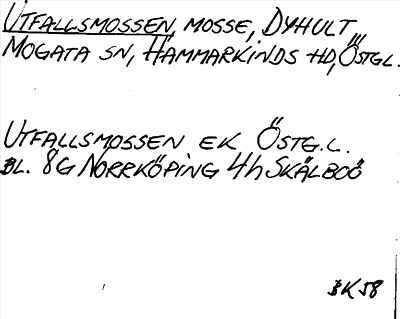 UTFALLSMOSSEN, MOSSE, DYHULT
MOGATA SN, HAMMARKINDS HD, ÖSTGL.
UTFALLSMOSSEN EK ÖSTG.L.
BL. 8G NORRKÖPING 4h SKÄLBOÖ
BK58